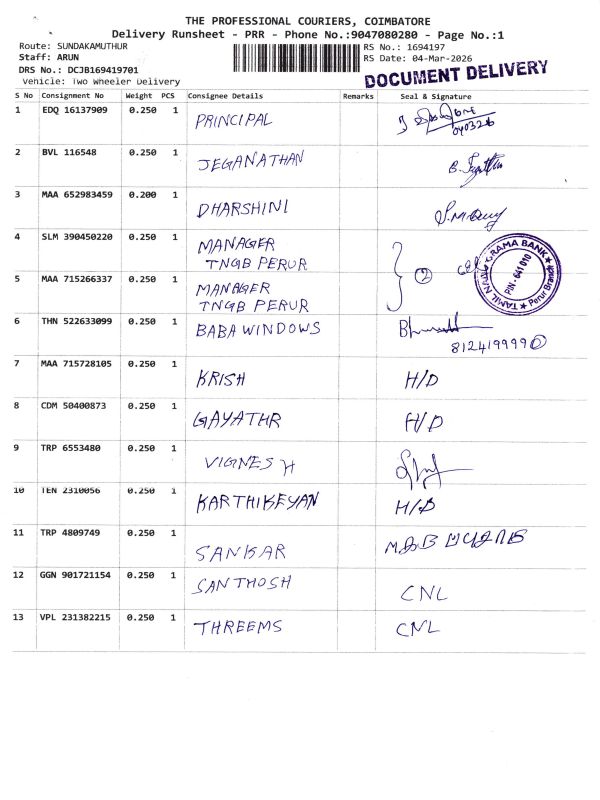 THE PROFESSIONAL COURIERS, COIMBATORE
Delivery Runsheet - PRR - Phone No.:9047080280 - Page No.:1
Route: SUNDAKAMUTHUR
RS No.: 1694197
Staff: ARUN
RS Date: 04-Mar-2026
DRS No.: DCJB169419701
DOCUMENT DELIVERY
Vehicle: Two Wheeler Delivery
S No Consignment No Weight PCS Consignee Details Remarks Seal & Signature
1 EDQ 16137909 0.250 1 PRINCIPAL
040326
2 BVL 116548 0.250 1 JEGANATHAN
3 MAA 652983459 0.200 1 DHARSHINI
4 SLM 390450220 0.250 1 MANAGER
TNGB PERUR
TAMIL NADU GRAMA BANK
PIN-641 010
Perur Branch
2
5 MAA 715266337 0.250 1 MANAGER
TNGB PERUR
6 THN 522633099 0.250 1 BABA WINDOWS
8124199990
7 MAA 715728105 0.250 1 KRISH H/D
8 CDM 50400873 0.250 1 GAYATHR H/D
9 TRP 6553480 0.250 1 VIGNESH
10 TEN 2310056 0.250 1 KARTHIKEYAN H/D
11 TRP 4809749 0.250 1 SANKAR
12 GGN 901721154 0.250 1 SANTHOSH CNL
13 VPL 231382215 0.250 1 THREEMS CNL